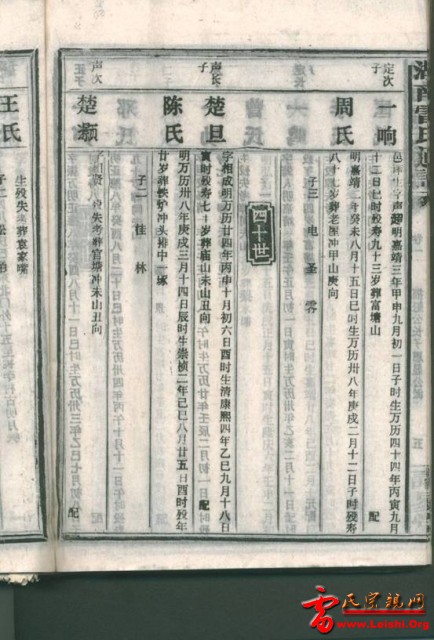 湖南雷氏通譜
定次子
一响
邑庠生字声韶明嘉靖三年甲申九月初一日子时生万历四十四年丙寅九月
十二日巳时殁寿九十三岁葬富塘山
配
周氏
明嘉靖二年癸未八月十五日巳时生万历卅八年庚戌二月十二日子时殁寿
八十七岁葬老屋冲甲山庚向
子三 电 圣 雰
四十世
声长子
楚旦
字相成明万历廿四年丙申十月初六日酉时生清康熙四年乙巳九月十八日
寅时殁寿七十岁葬庙山未山丑向
配
陈氏
明万历卅八年庚戌三月十四日辰时生崇祯二年己巳八月廿五日酉时殁年
廿岁葬铁炉冲头排中一塚
子一 佳林
声次子
楚灏
字 殁失考葬官塘冲未山丑向
配
王氏
生殁失考葬袁家嘴
子二
五
雷氏宗親网
www.Leishi.Org